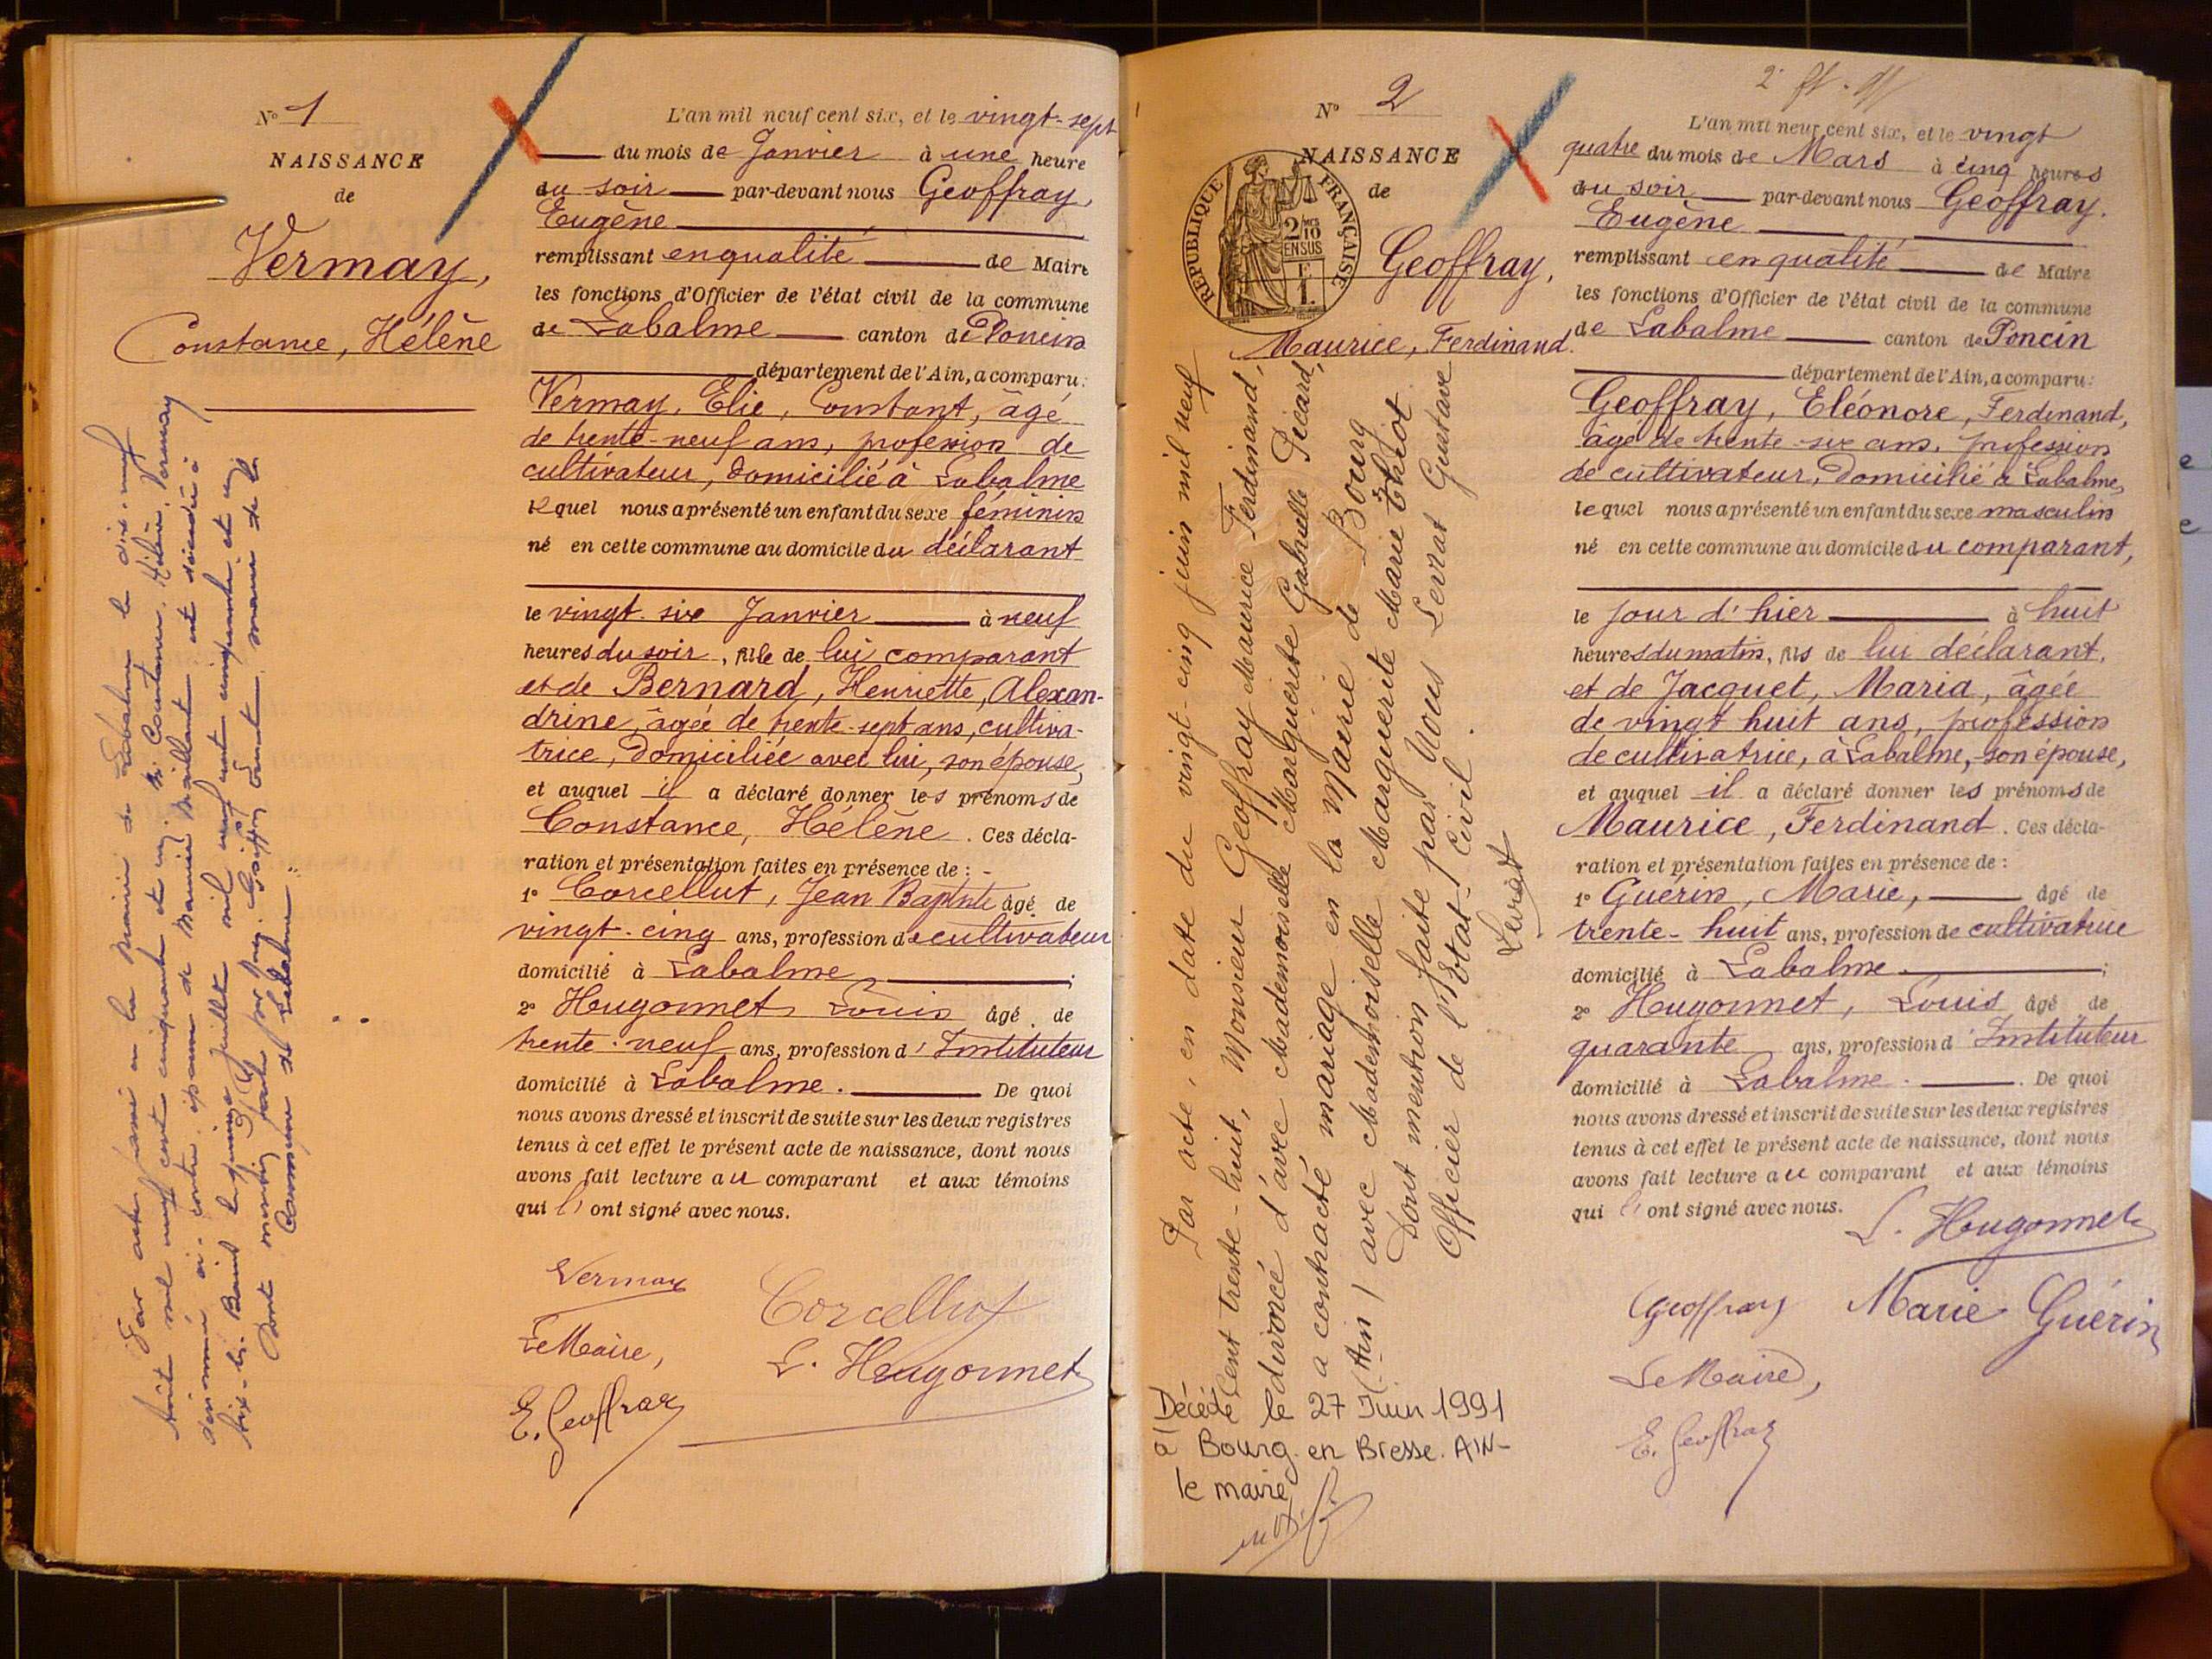 N° 1
NAISSANCE
de
Vermay,
Constance, Hélène
L'an mil neuf cent six, et le vingt-sept
du mois de Janvier à une heure
du soir par-devant nous Geoffray,
Eugène
remplissant en qualité de Maire
les fonctions d'Officier de l'état civil de la commune
de Labalme canton de Poncin
département de l'Ain, a comparu:
Vermay, Elie, Constant, âgé
de trente-neuf ans, profession de
cultivateur, domicilié à Labalme
lequel nous a présenté un enfant du sexe féminin
né en cette commune au domicile du déclarant
le vingt-six Janvier à neuf
heures du soir, fille de lui comparant
et de Bernard, Henriette, Alexan-
drine, âgée de trente-sept ans, cultiva-
trice, domiciliée avec lui, son épouse,
et auquel il a déclaré donner les prénoms de
Constance, Hélène. Ces décla-
ration et présentation faites en présence de: -
1° Corcellut, Jean Baptiste âgé de
vingt-cinq ans, profession de cultivateur
domicilié à Labalme;
2° Hugonnet Louis âgé de
trente-neuf ans, profession d'Instituteur
domicilié à Labalme. De quoi
nous avons dressé et inscrit de suite sur les deux registres
tenus à cet effet le présent acte de naissance, dont nous
avons fait lecture au comparant et aux témoins
qui l'ont signé avec nous.
Vermay
Corcellut
Le Maire,
L. Hugonnet
E. Geoffray
Par acte passé en la Mairie de Labalme le dix-neuf
Août mil neuf cent cinquante et un, Constance, Hélène Vermay
dénommée ci-contre, épouse de Maillant est décédée à
Aix-les-Bains le quinze juillet mil neuf cent cinquante et un
Dont mention faite par nous Geoffray Ernest maire de la
Commune de Labalme"
N° 2
NAISSANCE
de
RÉPUBLIQUE FRANÇAISE
2/10
EN SUS
1 F.
Geoffray,
Maurice, Ferdinand.
Par acte, en date du vingt-cinq juin mil neuf
cent trente-huit, Monsieur Geoffray Maurice Ferdinand,
divorcé d'avec Mademoiselle Marguerite Gabrielle Picard,
a contracté mariage en la Mairie de Bourg
(Ain) avec Mademoiselle Marguerite Marie Chtot
Dont mention faite par Nous Levrat Gustave
Officier de l'Etat-Civil.
Levrat
Décédé le 27 Juin 1991
à Bourg en Bresse. AIN-
le maire
L'an mil neuf cent six, et le vingt
quatre du mois de Mars à cinq heures
du soir par-devant nous Geoffray.
Eugène
remplissant en qualité de Maire
les fonctions d'Officier de l'état civil de la commune
de Labalme canton de Poncin
département de l'Ain, a comparu:
Geoffray, Eléonore, Ferdinand,
âgé de trente-six ans, profession
de cultivateur, domicilié à Labalme,
lequel nous a présenté un enfant du sexe masculin
né en cette commune au domicile du comparant,
le jour d'hier à huit
heures du matin, fils de lui déclarant,
et de Jacquet, Maria, âgée
de vingt huit ans, profession
de cultivatrice, à Labalme, son épouse,
et auquel il a déclaré donner les prénoms de
Maurice, Ferdinand. Ces décla-
ration et présentation faites en présence de:
1° Guérin, Marie, âgé de
trente-huit ans, profession de cultivatrice
domicilié à Labalme;
2° Hugonnet, Louis âgé de
quarante ans, profession d'Instituteur
domicilié à Labalme. De quoi
nous avons dressé et inscrit de suite sur les deux registres
tenus à cet effet le présent acte de naissance, dont nous
avons fait lecture au comparant et aux témoins
qui l'ont signé avec nous.
L. Hugonnet
Geoffray Marie Guérin
Le Maire,
E. Geoffray